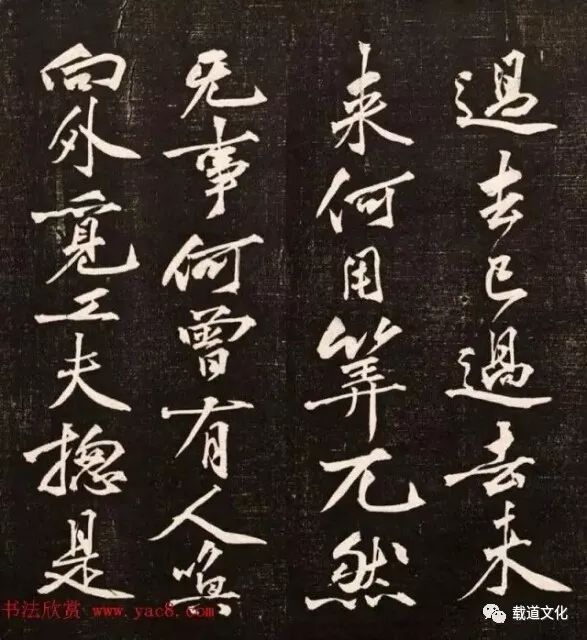 過去已過去未
来何用筭兀然
无事何曾有人喚
向外覓工夫揔是
书法欣赏 www.yac8.com
载道文化